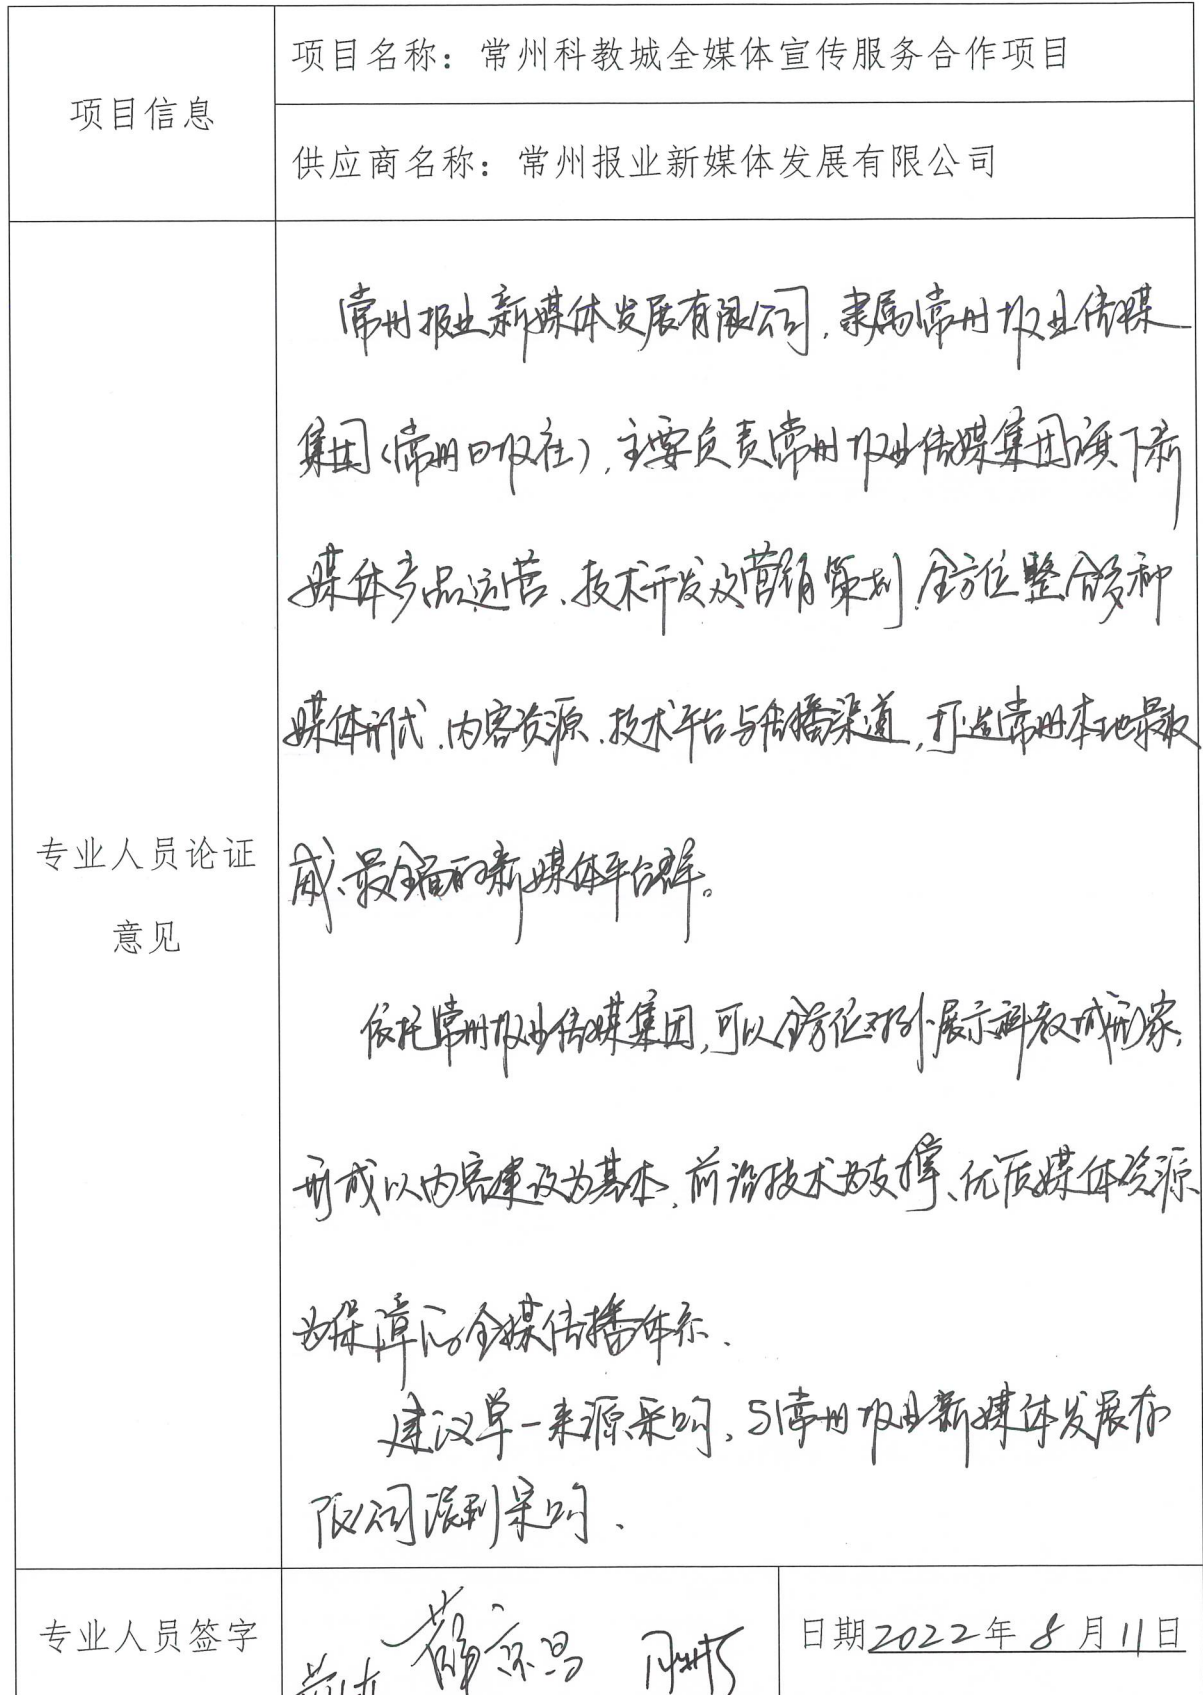 项目信息
项目名称：常州科教城全媒体宣传服务合作项目
供应商名称：常州报业新媒体发展有限公司
专业人员论证
意见
常州报业新媒体发展有限公司，隶属常州报业传媒
集团（常州日报社），主要负责常州报业传媒集团旗下新
媒体产品运营、技术开发及营销策划，全方位整合多种
媒体形式、内容资源、技术平台与传播渠道，打造常州本地最权
威、最全面的新媒体平台群。
依托常州报业传媒集团，可以全方位对外展示科教城形象，
形成以内容建设为基本，前沿技术为支撑、优质媒体资源
为保障的全媒传播体系．
建议单一来源采购，与常州报业新媒体发展有
限公司谈判采购．
专业人员签字
薛京昌
日期2022年8月11日